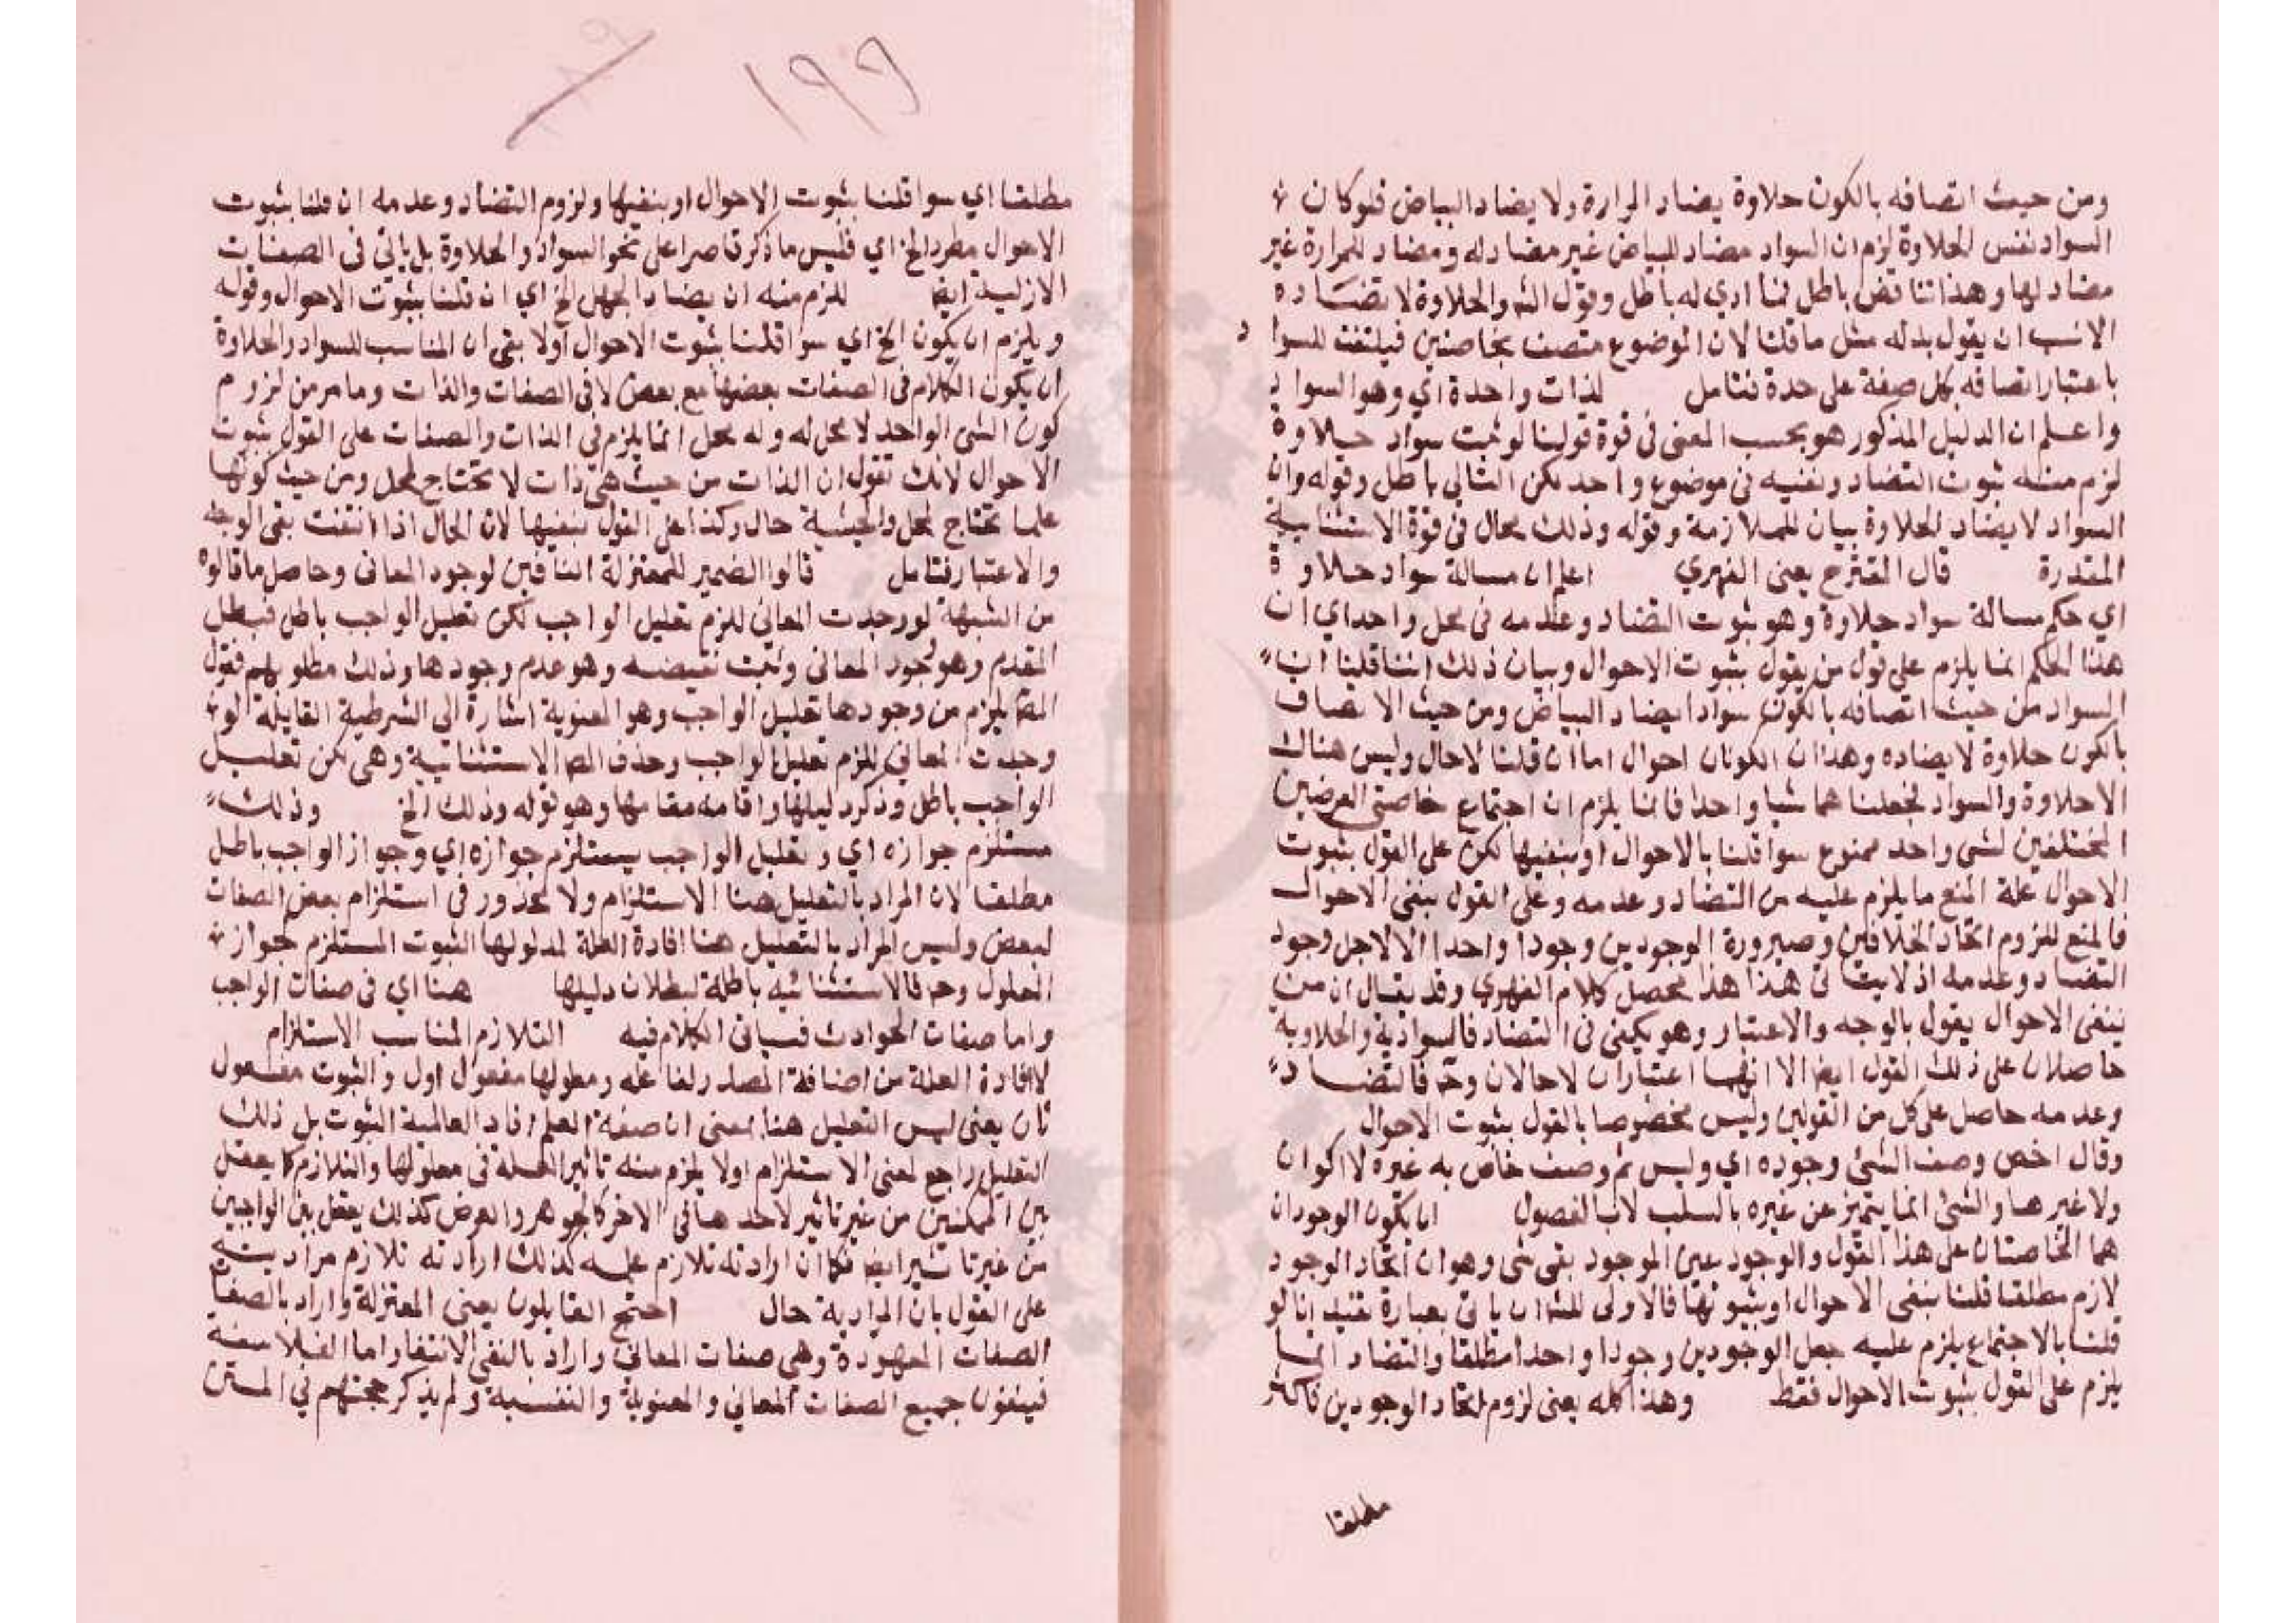 ومن حيث اتصافه بالكون حلاوة يضاد المرارة ولا يضاد البياض فلو كان
السواد نفس الحلاوة لزم ان السواد مضاد للبياض غير مضاد له ومضاد للمرارة غير
مضاد لها وهذا تناقض باطل فما ادي له باطل وقول الش والحلاوة لا تضاده
الانسب ان يقول بدله مثل ما قلنا لان الموضوع متصف بخاصتين فيلتفت للسواد
باعتبار اتصافه بكل صفة على حدة فتامل لذات واحدة اي وهو السواد
واعلم ان الدليل المذكور هو بحسب المعنى في قوة قولنا لو ثبت سواد حلاوة
لزم منه ثبوت التضاد ونفيه في موضوع واحد لكن التالي باطل وقوله وان
السواد لا يضاد الحلاوة بيان للملازمة وقوله وذلك محال في قوة الاستثنائية
المقدرة قال المقترح يعني الفهري اعلم ان مسالة سواد حلاوة
اي حكم مسالة سواد حلاوة وهو ثبوت التضاد وعدمه في محل واحد اي ان
هذا الحكم انما يلزم على قول من يقول بثبوت الاحوال وبيان ذلك اننا قلنا ان
السواد من حيث اتصافه بالكون سوادا يضاد البياض ومن حيث الاتصاف
بالكون حلاوة لا يضاده وهذان الكونان احوال اما ان قلنا لا حال وليس هناك
الا حلاوة والسواد فجعلنا هما شيا واحدا فانما يلزم ان اجتماع خاصتي العرضين
المختلفين لشي واحد ممنوع سوا قلنا بالاحوال او بنفيها لكن على القول بثبوت
الاحوال علة المنع ما يلزم عليه من التضاد وعدمه وعلى القول بنفي الاحوال
فالمنع للزوم اتحاد الخلافين وصيرورة الوجودين وجودا واحدا لا لاجل وجود
التضاد وعدمه اذ لا يتاتى هذا هذا محصل كلام الفهري وقد يقال ان من
ينفي الاحوال يقول بالوجه والاعتبار وهو يكفي في التضاد فالسوادية والحلاوية
حاصلان على ذلك القول ايضا الا انهما اعتباران لا حالان وح فالتضاد
وعدمه حاصل على كل من القولين وليس مخصوصا بالقول بثبوت الاحوال
وقال اخص وصف الشي وجوده اي وليس ثم وصف خاص به غيره لا اكوان
ولا غيرها والشي انما يتميز عن غيره بالسلب لا بالفصول ان يكون الوجودان
هما الخاصتان على هذا القول والوجود عين الموجود بقى شي وهو ان اتحاد الوجود
لازم مطلقا قلنا بنفي الاحوال او بثبوتها فالاولى للش ان ياتي بعبارة تفيد انا لو
قلنا بالاجتماع يلزم عليه جعل الوجودين وجودا واحدا مطلقا والتضاد انما
يلزم على القول بثبوت الاحوال فقط وهذا كله يعني لزوم اتحاد الوجودين
مطلقا
١٩٩
مطلقا اي سوا قلنا بثبوت الاحوال او بنفيها ولزوم التضاد وعدمه ان قلنا بثبوت
الاحوال مطرد الخ اي فليس ما ذكر قاصرا على نحو السواد والحلاوة بل ياتي في الصفات
الازلية ايضا للزم منه ان يضاد الجهل الخ اي ان قلنا بثبوت الاحوال وقوله
ويلزم ان يكون الخ اي سوا قلنا بثبوت الاحوال اولا بقى ان المناسب للسواد والحلاوة
ان يكون الكلام في الصفات بعضها مع بعض لا في الصفات والذات وما مر من لزوم
كون الشي الواحد لا محل له وله محل انما يلزم في الذات والصفات على القول بثبوت
الاحوال لانك تقول ان الذات من حيث هي ذات لا تحتاج لمحل ومن حيث كونها
علما تحتاج لمحل والحيثية حال وكذا على القول بنفيها لان الحال اذا انتفت بقى الوجه
والاعتبار فتامل قالوا الضمير للمعتزلة النافين لوجود المعاني وحاصل ما قالوه
من الشبهة لو وجدت المعاني للزم تعليل الواجب لكن تعليل الواجب باطل فبطل
المقدم وهو وجود المعاني وثبت نقيضه وهو عدم وجودها وذلك مطلوبهم فقول
المص يلزم من وجودها تعليل الواجب وهو المعنوية اشارة الى الشرطية القايلة لو
وجدت المعاني للزم تعليل الواجب وحذف المص الاستثنائية وهي لكن تعليل
الواجب باطل وذكر دليلها واقامه مقامها وهو قوله وذلك الخ وذلك
مستلزم جوازه اي وتعليل الواجب يستلزم جوازه اي وجواز الواجب باطل
مطلقا لان المراد بالتعليل هنا الاستلزام ولا محذور في استلزام بعض الصفات
لبعض وليس المراد بالتعليل هنا افادة العلة لمدلولها الثبوت المستلزم جواز
المعلول وح فالاستثنائيه باطلة لبطلان دليلها هنا اي في صفات الواجب
واما صفات الحوادث فسياتي الكلام فيه التلازم المناسب الاستلزام
لا افادة العلة من اضافة المصدر لفاعله ومعلولها مفعول اول والثبوت مفعول
ثان يعني ليس التعليل هنا بمعنى ان صفة العلم افاد العالمية الثبوت بل ذلك
التعليل راجع لمعنى الاستلزام اولا يلزم منه تاثير العلة في معلولها والتلازم كما يعقل
بين الممكنين من غير تاثير لاحدهما في الاخر كالجوهر والعرض كذلك يعقل بين الواجبين
من غير تاثير ايضا فكما ان ارادته تلازم علمه كذلك ارادته تلازم مراديته
على القول بان المرادية حال احتج القايلون يعني المعتزلة واراد بالصفات
الصفات المعهودة وهي صفات المعاني واراد بالنفي الانتفا واما الفلاسفة
فينفون جميع الصفات المعاني والمعنوية والنفسية ولم يذكر حجتهم في المتن